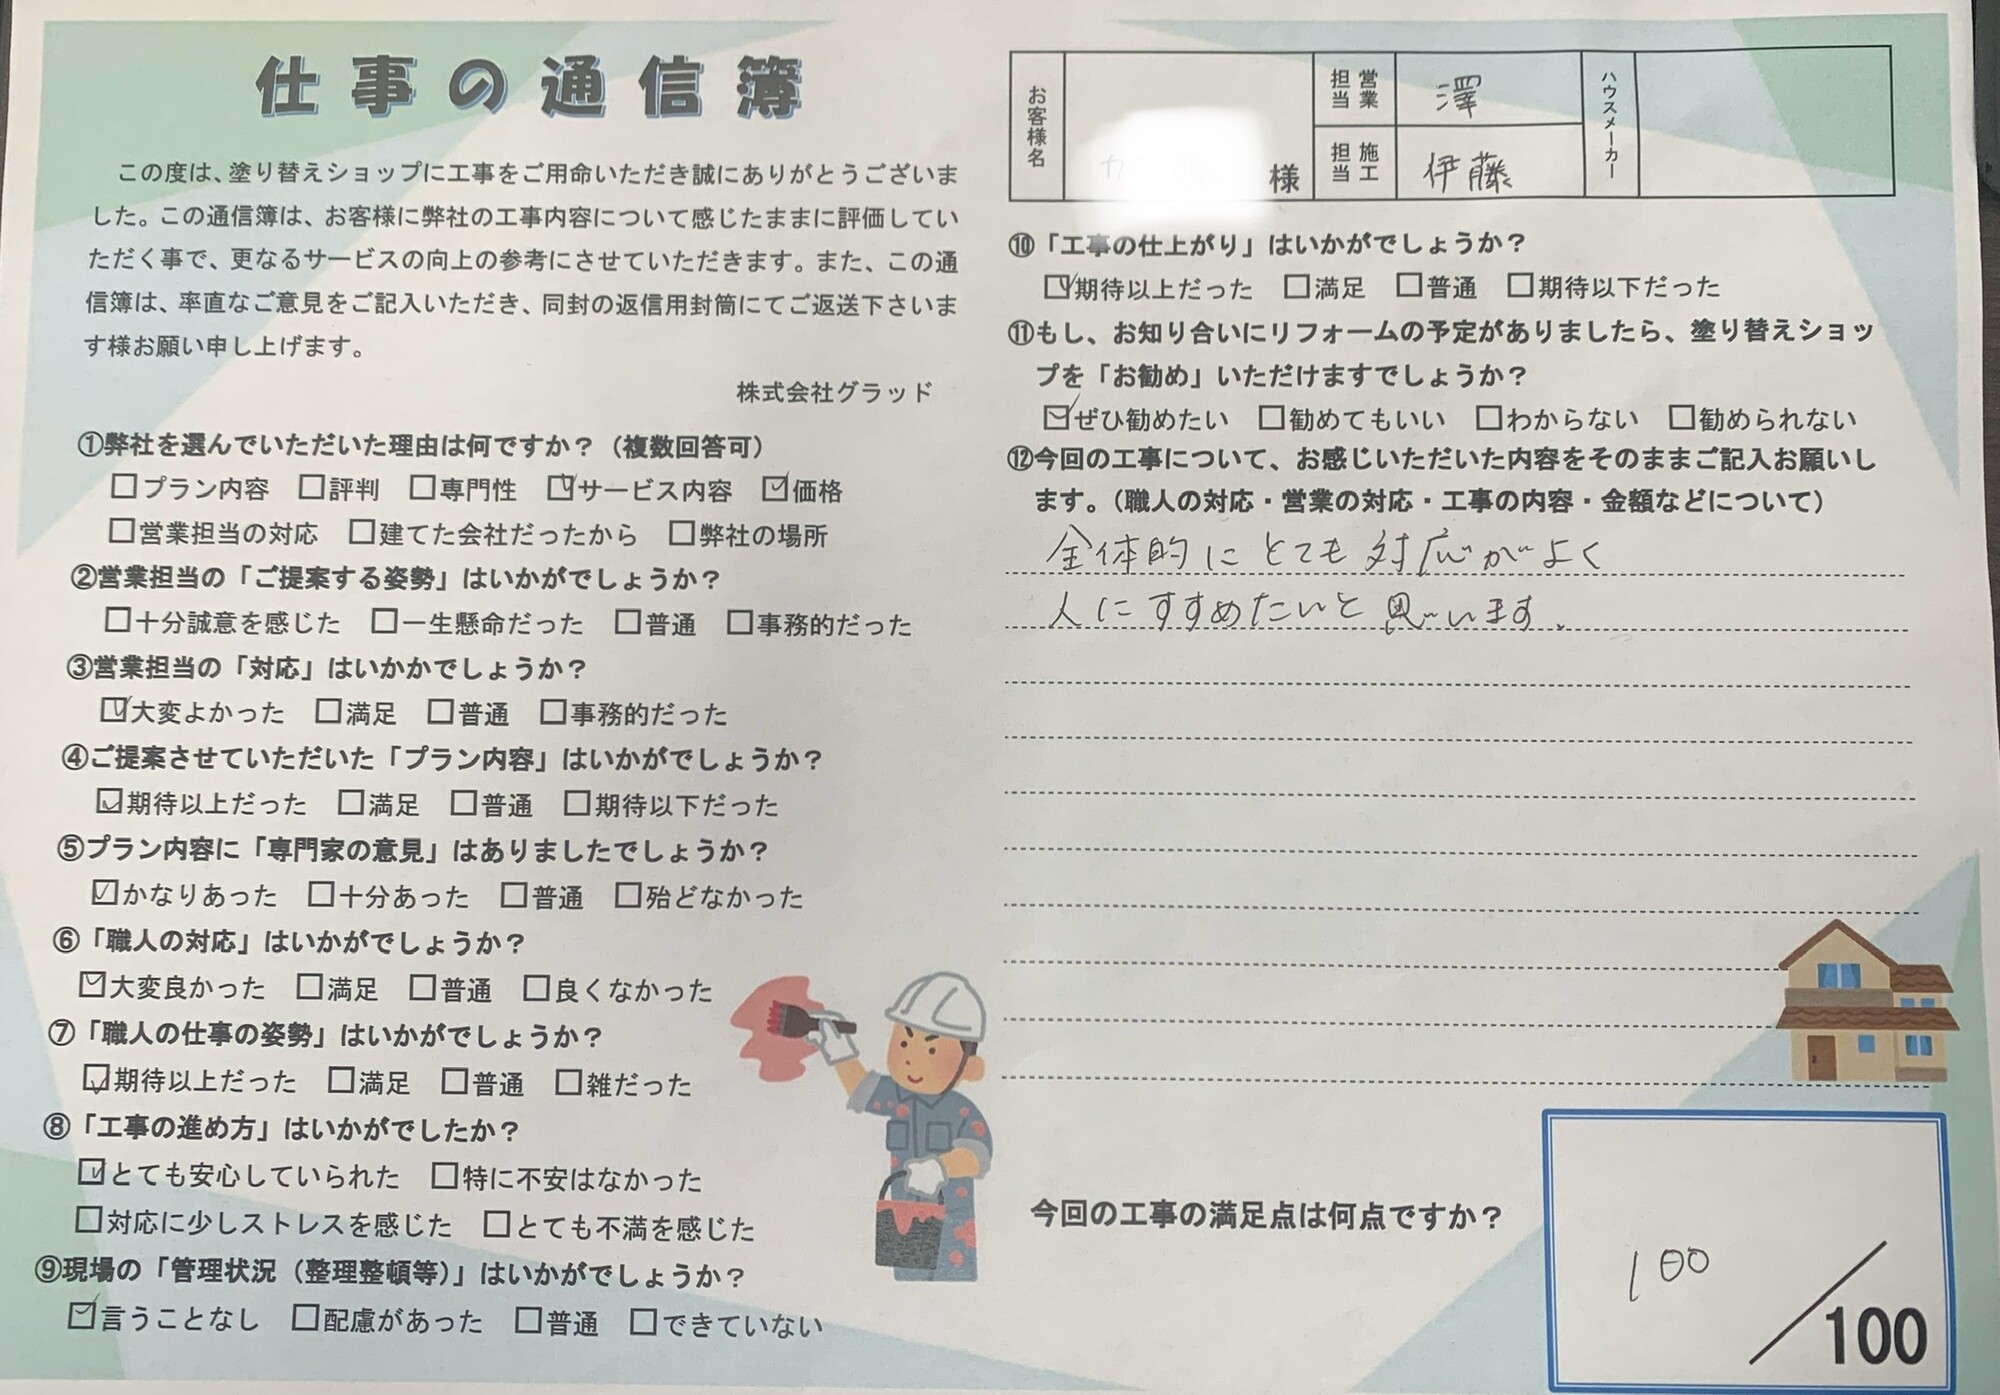 仕事の通信簿
この度は、塗り替えショップに工事をご用命いただき誠にありがとうございま
した。この通信簿は、お客様に弊社の工事内容について感じたままに評価してい
ただく事で、更なるサービスの向上の参考にさせていただきます。また、この通
信簿は、率直なご意見をご記入いただき、同封の返信用封筒にてご返送下さいま
す様お願い申し上げます。
株式会社グラッド
①弊社を選んでいただいた理由は何ですか？（複数回答可）
□プラン内容 □評判 □専門性 ☑サービス内容 ☑価格
□営業担当の対応 □建てた会社だったから □弊社の場所
②営業担当の「ご提案する姿勢」はいかがでしょうか？
□十分誠意を感じた □一生懸命だった □普通 □事務的だった
③営業担当の「対応」はいかかでしょうか？
☑大変よかった □満足 □普通 □事務的だった
④ご提案させていただいた「プラン内容」はいかがでしょうか？
☑期待以上だった □満足 □普通 □期待以下だった
⑤プラン内容に「専門家の意見」はありましたでしょうか？
☑かなりあった □十分あった □普通 □殆どなかった
⑥「職人の対応」はいかがでしょうか？
☑大変良かった □満足 □普通 □良くなかった
⑦「職人の仕事の姿勢」はいかがでしょうか？
☑期待以上だった □満足 □普通 □雑だった
⑧「工事の進め方」はいかがでしたか？
☑とても安心していられた □特に不安はなかった
□対応に少しストレスを感じた □とても不満を感じた
⑨現場の「管理状況（整理整頓等）」はいかがでしょうか？
☑言うことなし □配慮があった □普通 □できていない
お客様名 様 営業担当 澤 ハウスメーカー
施工担当 伊藤
⑩「工事の仕上がり」はいかがでしょうか？
☑期待以上だった □満足 □普通 □期待以下だった
⑪もし、お知り合いにリフォームの予定がありましたら、塗り替えショッ
プを「お勧め」いただけますでしょうか？
☑ぜひ勧めたい □勧めてもいい □わからない □勧められない
⑫今回の工事について、お感じいただいた内容をそのままご記入お願いし
ます。（職人の対応・営業の対応・工事の内容・金額などについて）
全体的にとても対応がよく
人にすすめたいと思います。
今回の工事の満足点は何点ですか？
100／100